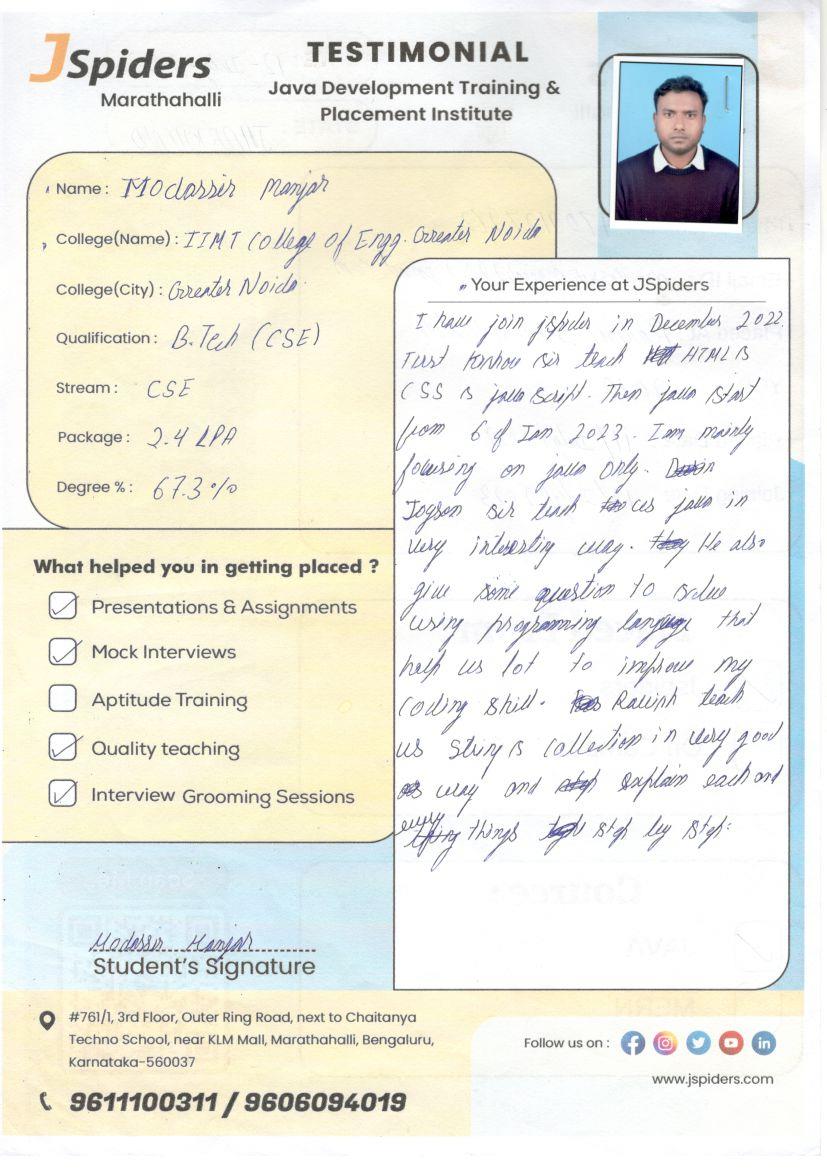 JSpiders
Marathahalli
TESTIMONIAL
Java Development Training &
Placement Institute
Name : Modassir Manjar
College(Name) : IIMT College of Engg. Greater Noida
College(City) : Greater Noida
Qualification : B.Tech (CSE)
Stream : CSE
Package : 2.4 LPA
Degree % : 67.3 %
What helped you in getting placed ?
Presentations & Assignments
Mock Interviews
Aptitude Training
Quality teaching
Interview Grooming Sessions
Your Experience at JSpiders
I have join jspider in December 2022.
First sir teach HTML &
CSS & java Script. Then java start
from 6 of Jan 2023. I am mainly
focusing on java only.
sir teach us java in
very interesting way. He also
give some question to solve
using programming language that
help us lot to improve my
coding skill. teach
us String & Collection in very good
way and explain each and
every things step by step.
Modassir Manjar
Student's Signature
#761/1, 3rd Floor, Outer Ring Road, next to Chaitanya
Techno School, near KLM Mall, Marathahalli, Bengaluru,
Karnataka-560037
9611100311 / 9606094019
Follow us on :
www.jspiders.com